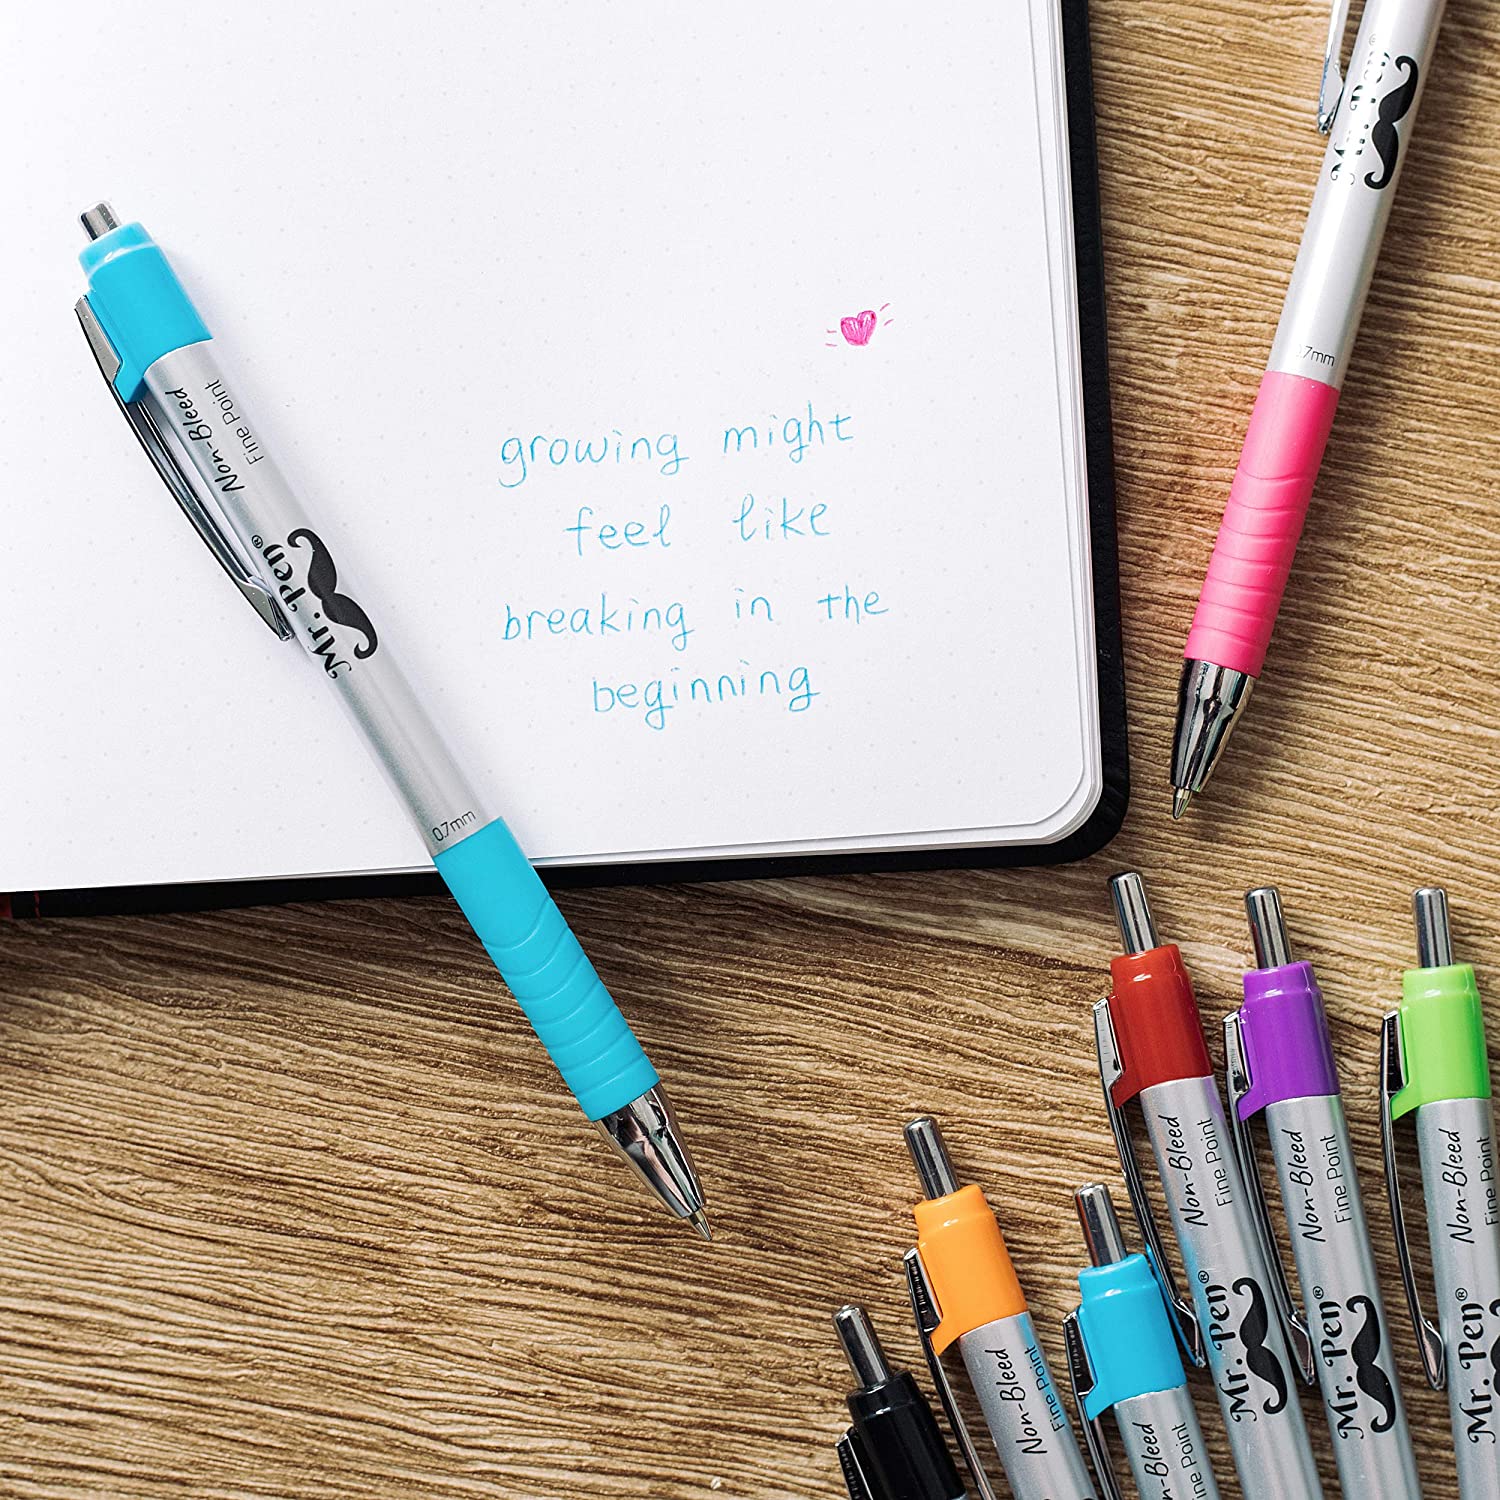 growing might
feel like
breaking in the
beginning
Non-Bleed
Fine Point
Mr. Pen®
0.7mm
Mr. Pen®
.7mm
Non-Bleed
Fine Point
Non-Bleed
Fine Point
Mr. Pen®
Non-Bleed
Fine Point
Mr. Pen®
Non-Bleed
Fine Point
Mr. Pen®
-Bleed
ine Point